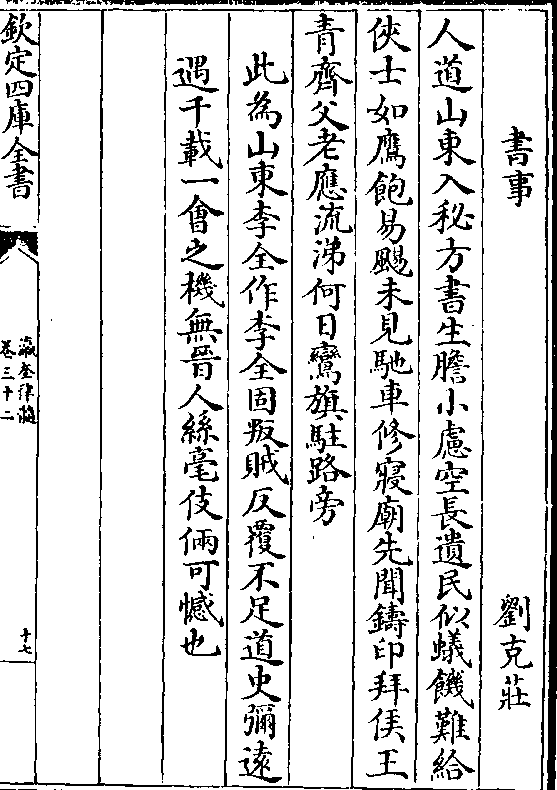 書事　劉克莊
人道山東入秘方書生膽小慮空長遺民似蟻饑難給
俠士如鷹飽易颺未見馳車修寢廟先聞鑄印拜侯王
青齊父老應流涕何日鸞旗駐路旁
此為山東李全作李全固叛賊反覆不足道史彌遠
遇千載一會之機無晉人絲毫伎倆可憾也
欽定四庫全書
瀛奎律髓
卷三十二
十七